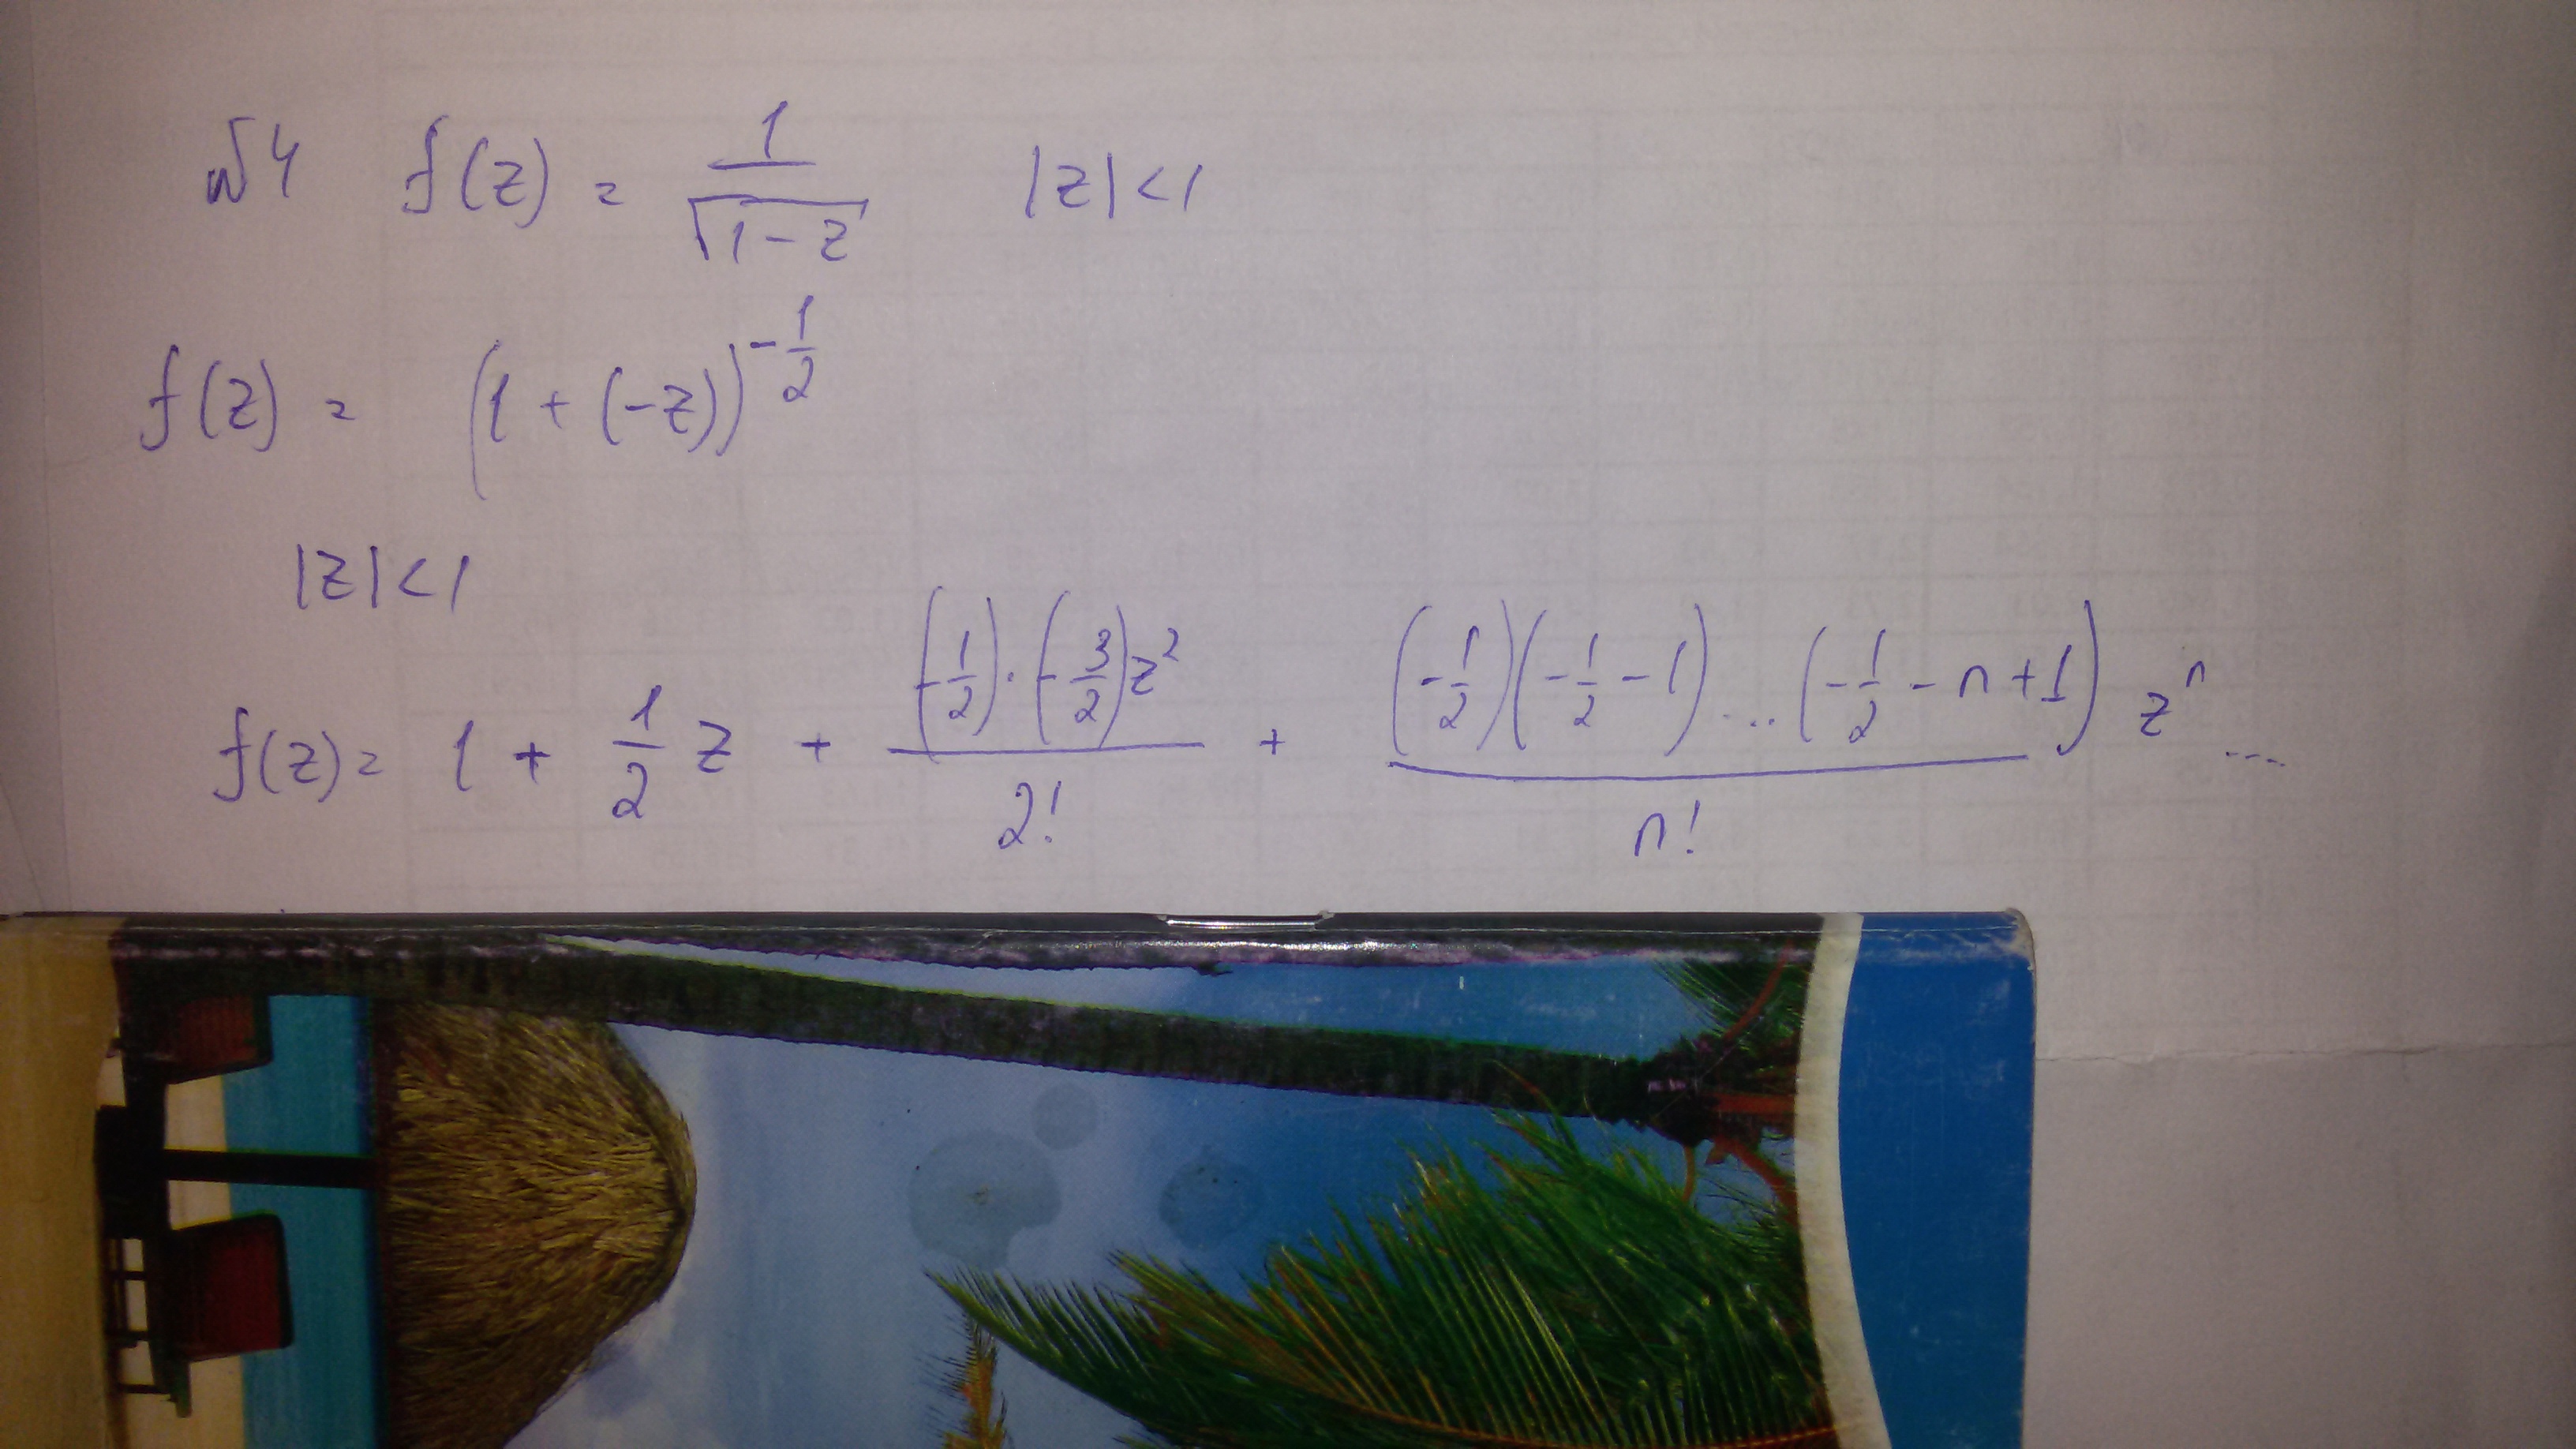 №4 f(z) = 1/√(1-z) |z|<1
f(z) = (1+(-z))^(-1/2)
|z|<1
f(z) = 1 + 1/2 z + ((-1/2)·(-3/2)z²)/2! + ((-1/2)(-1/2-1)...(-1/2-n+1))/n! zⁿ ...